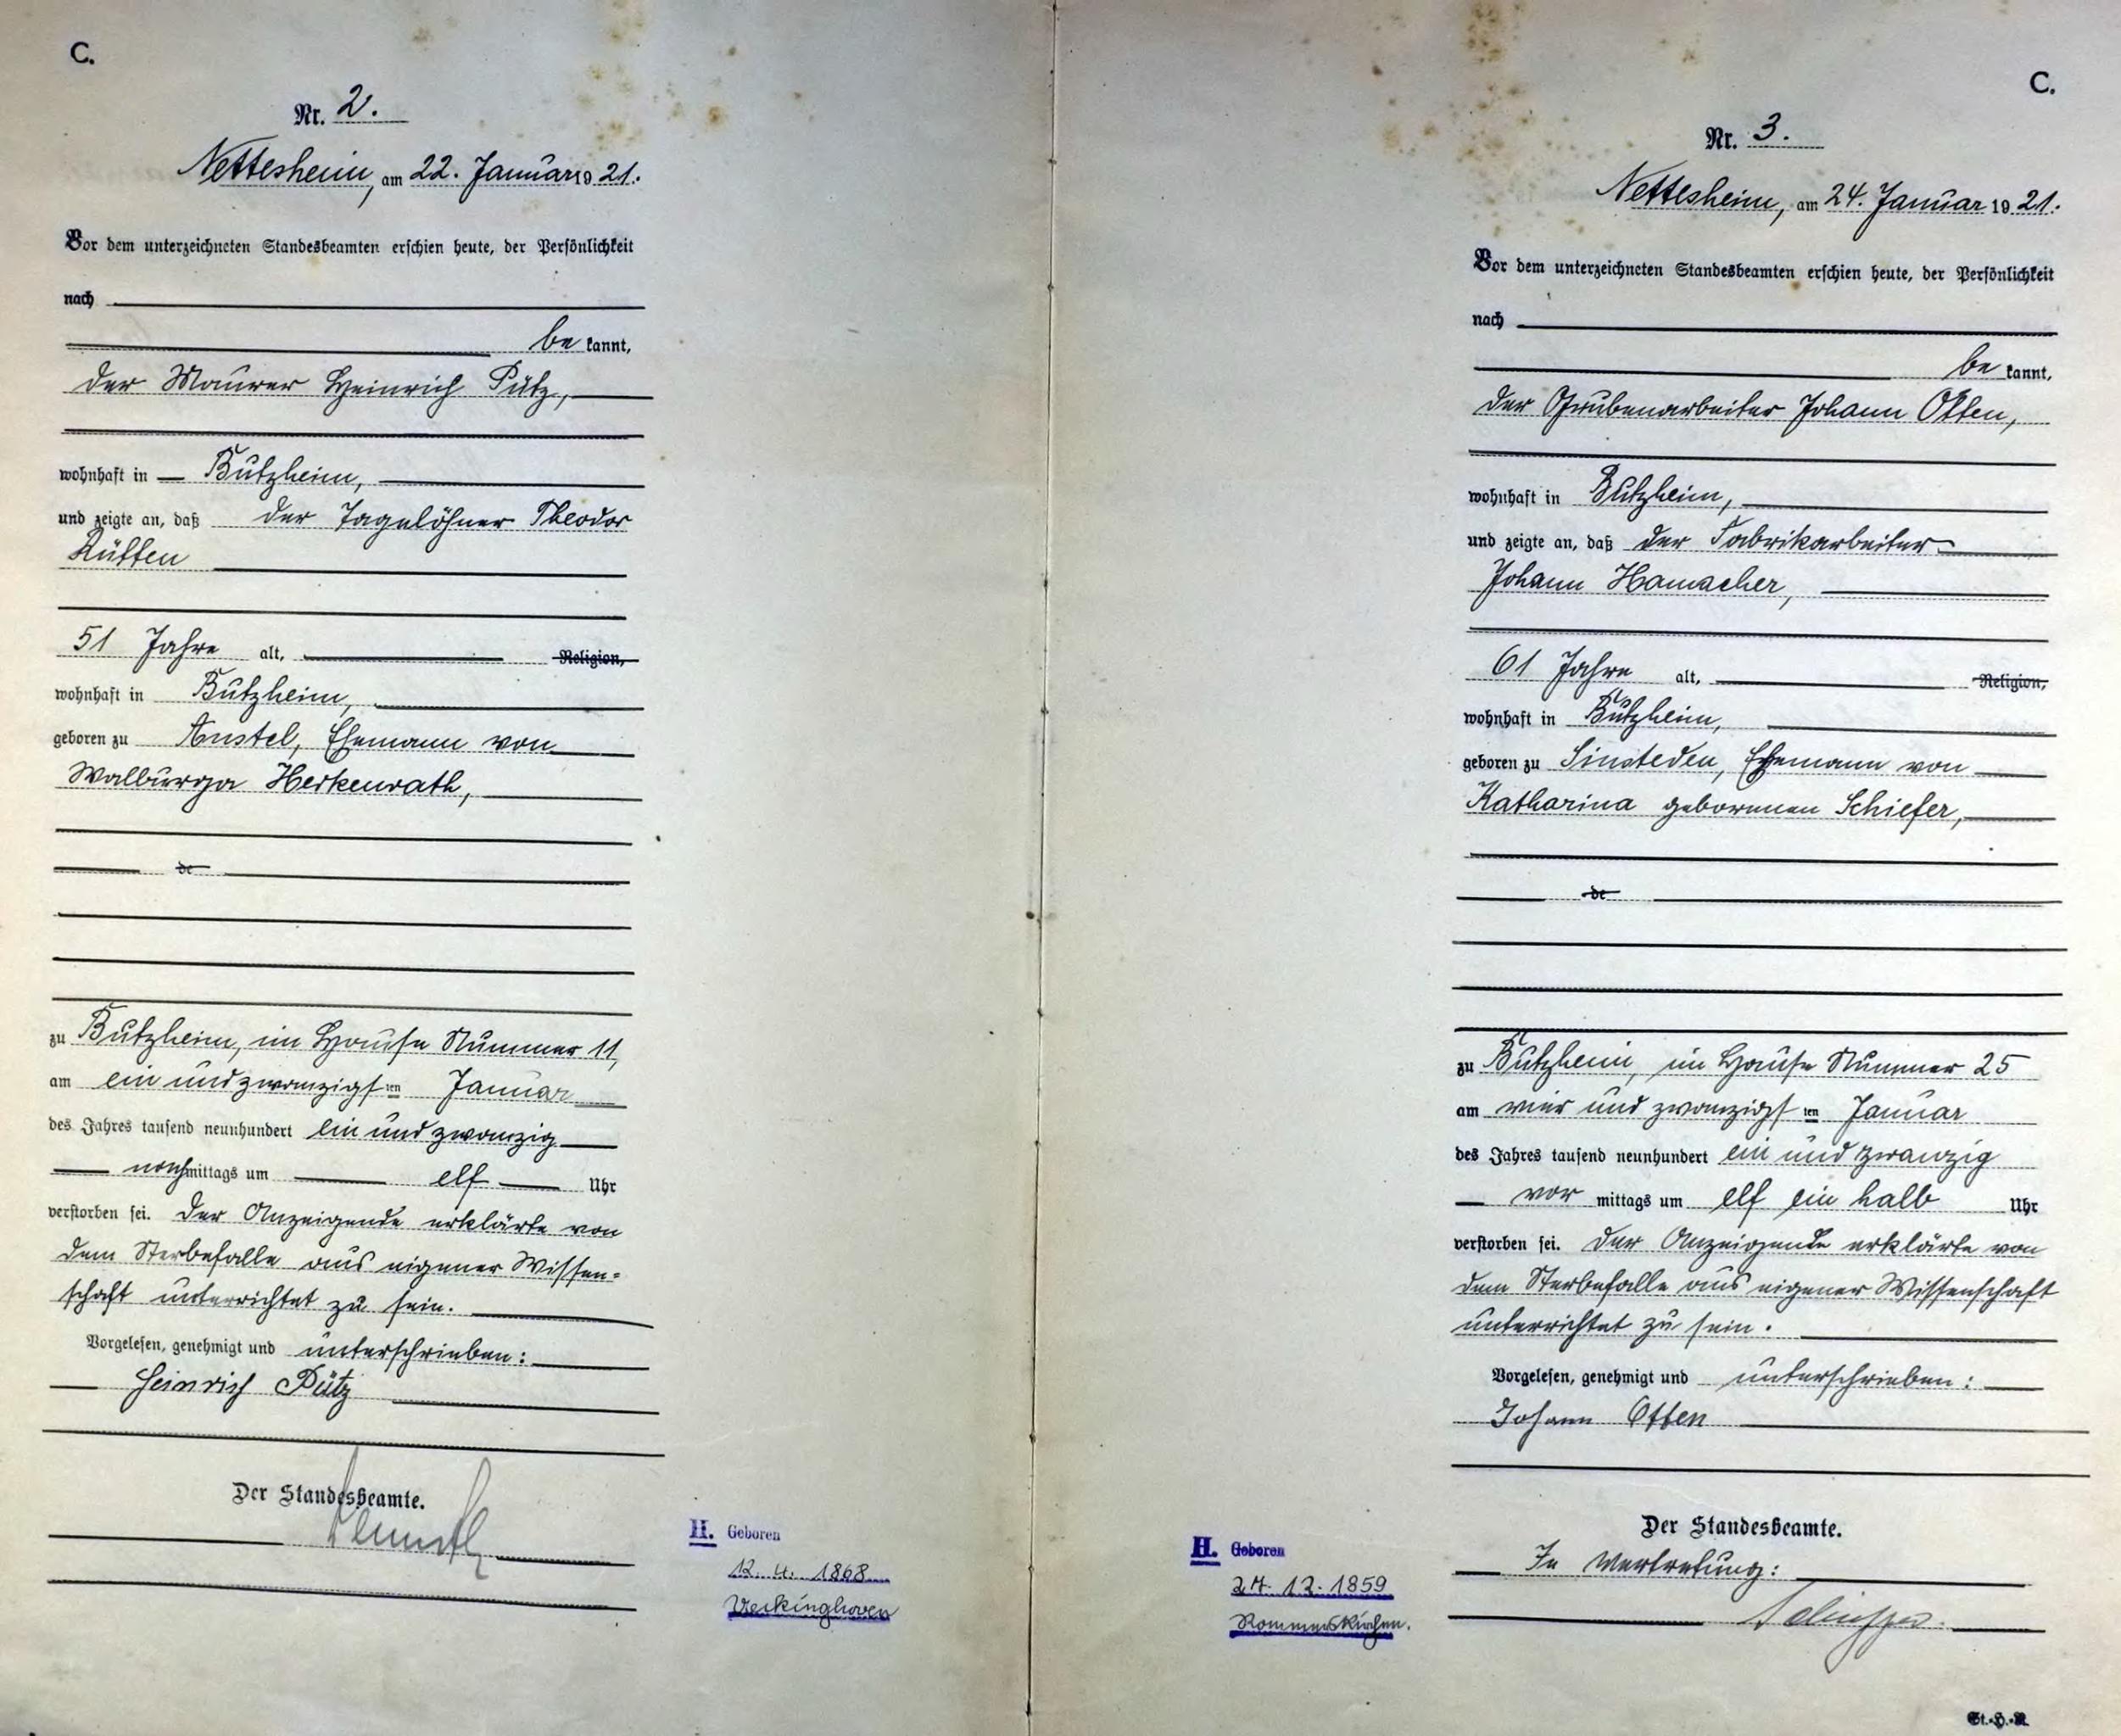 C.
Nr. 2.
Nettesheim, am 22. Januar 1921.
Vor dem unterzeichneten Standesbeamten erschien heute, der Persönlichkeit
nach
be kannt,
der Maurer Heinrich Pütz,
wohnhaft in Butzheim,
und zeigte an, daß der Tagelöhner Theodor
Rütten
51 Jahre alt, Religion,
wohnhaft in Butzheim,
geboren zu Anstel, Ehemann von
Walburga Herkenrath,
de
zu Butzheim, im Hause Nummer 11,
am ein und zwanzigsten Januar
des Jahres tausend neunhundert ein und zwanzig
nachmittags um elf Uhr
verstorben sei. Der Anzeigende erklärte von
dem Sterbefalle aus eigener Wissen=
schaft unterrichtet zu sein.
Vorgelesen, genehmigt und unterschrieben:
Heinrich Pütz
Der Standesbeamte.
H. Geboren
12. 4. 1868
Veckinghoven
C.
Nr. 3.
Nettesheim, am 24. Januar 1921.
Vor dem unterzeichneten Standesbeamten erschien heute, der Persönlichkeit
nach
be kannt,
der Grubenarbeiter Johann Otten,
wohnhaft in Butzheim,
und zeigte an, daß der Fabrikarbeiter
Johann Hamacher,
61 Jahre alt, Religion,
wohnhaft in Butzheim,
geboren zu Sinsteden, Ehemann von
Katharina geborenen Schiefer,
de
zu Butzheim, im Hause Nummer 25
am vier und zwanzigsten Januar
des Jahres tausend neunhundert ein und zwanzig
vor mittags um elf ein halb Uhr
verstorben sei. Der Anzeigende erklärte von
dem Sterbefalle aus eigener Wissenschaft
unterrichtet zu sein.
Vorgelesen, genehmigt und unterschrieben:
Johann Otten
Der Standesbeamte.
In Vertretung:
H. Geboren
27. 12. 1859
Rommerskirchen.
St.-H.-R.